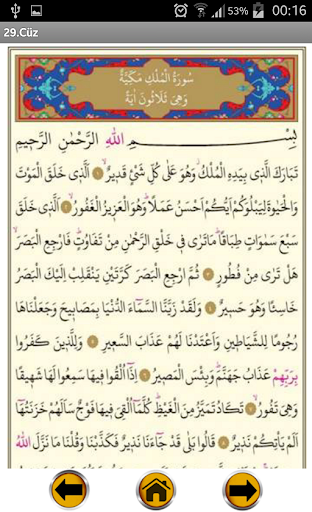 53% 00:16
29.Cüz
سُورَةُ الْمُلْكِ مَكِّيَّةٌ
وَهِيَ ثَلَاثُونَ اٰيَةً
بِسْمِ اللّٰهِ الرَّحْمٰنِ الرَّحٖيمِ
تَبَارَكَ الَّذٖى بِيَدِهِ الْمُلْكُ وَهُوَ عَلٰى كُلِّ شَیْءٍ قَدٖيرٌ ﴿١﴾ اَلَّذٖى خَلَقَ الْمَوْتَ
وَالْحَيٰوةَ لِيَبْلُوَكُمْ اَيُّكُمْ اَحْسَنُ عَمَلًا وَهُوَ الْعَزٖيزُ الْغَفُورُ ﴿٢﴾ اَلَّذٖى خَلَقَ
سَبْعَ سَمٰوَاتٍ طِبَاقًا مَا تَرٰى فٖى خَلْقِ الرَّحْمٰنِ مِنْ تَفَاوُتٍ فَارْجِعِ الْبَصَرَ
هَلْ تَرٰى مِنْ فُطُورٍ ﴿٣﴾ ثُمَّ ارْجِعِ الْبَصَرَ كَرَّتَيْنِ يَنْقَلِبْ اِلَيْكَ الْبَصَرُ
خَاسِئًا وَهُوَ حَسٖيرٌ ﴿٤﴾ وَلَقَدْ زَيَّنَّا السَّمَٓاءَ الدُّنْيَا بِمَصَابٖيحَ وَجَعَلْنَاهَا
رُجُومًا لِلشَّيَاطٖينِ وَاَعْتَدْنَا لَهُمْ عَذَابَ السَّعٖيرِ ﴿٥﴾ وَلِلَّذٖينَ كَفَرُوا
بِرَبِّهِمْ عَذَابُ جَهَنَّمَ وَبِئْسَ الْمَصٖيرُ ﴿٦﴾ اِذَٓا اُلْقُوا فٖيهَا سَمِعُوا لَهَا شَهٖيقًا
وَهِىَ تَفُورُ ﴿٧﴾ تَكَادُ تَمَيَّزُ مِنَ الْغَيْظِ كُلَّمَٓا اُلْقِىَ فٖيهَا فَوْجٌ سَاَلَهُمْ خَزَنَتُهَٓا
اَلَمْ يَأْتِكُمْ نَذٖيرٌ ﴿٨﴾ قَالُوا بَلٰى قَدْ جَٓاءَنَا نَذٖيرٌ فَكَذَّبْنَا وَقُلْنَا مَا نَزَّلَ اللّٰهُ